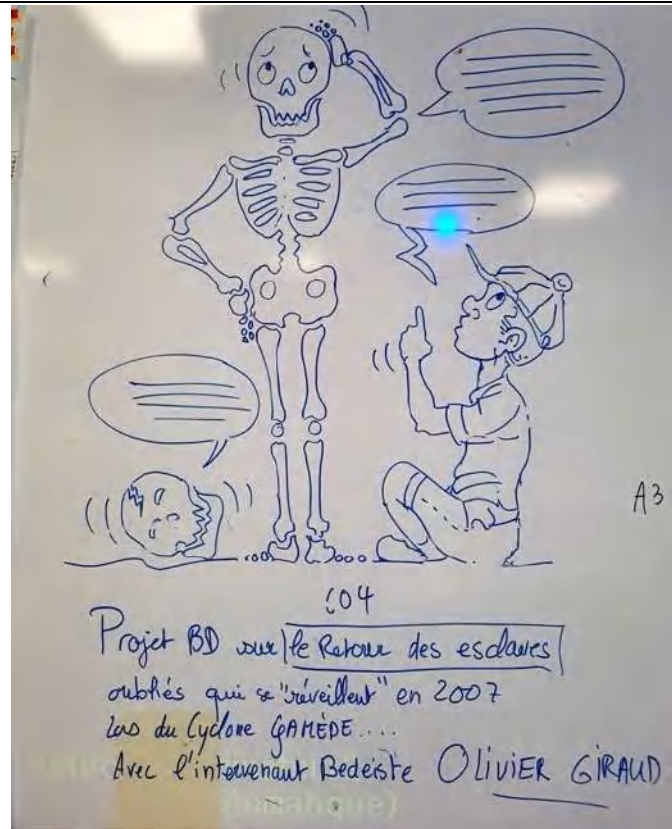 A3
604
Projet BD sur le Retour des esclaves
oubliés qui se "réveillent" en 2007
Lors du Cyclone GAMÈDE....
Avec l'intervenant Bedeiste OLIVIER GIRAUD